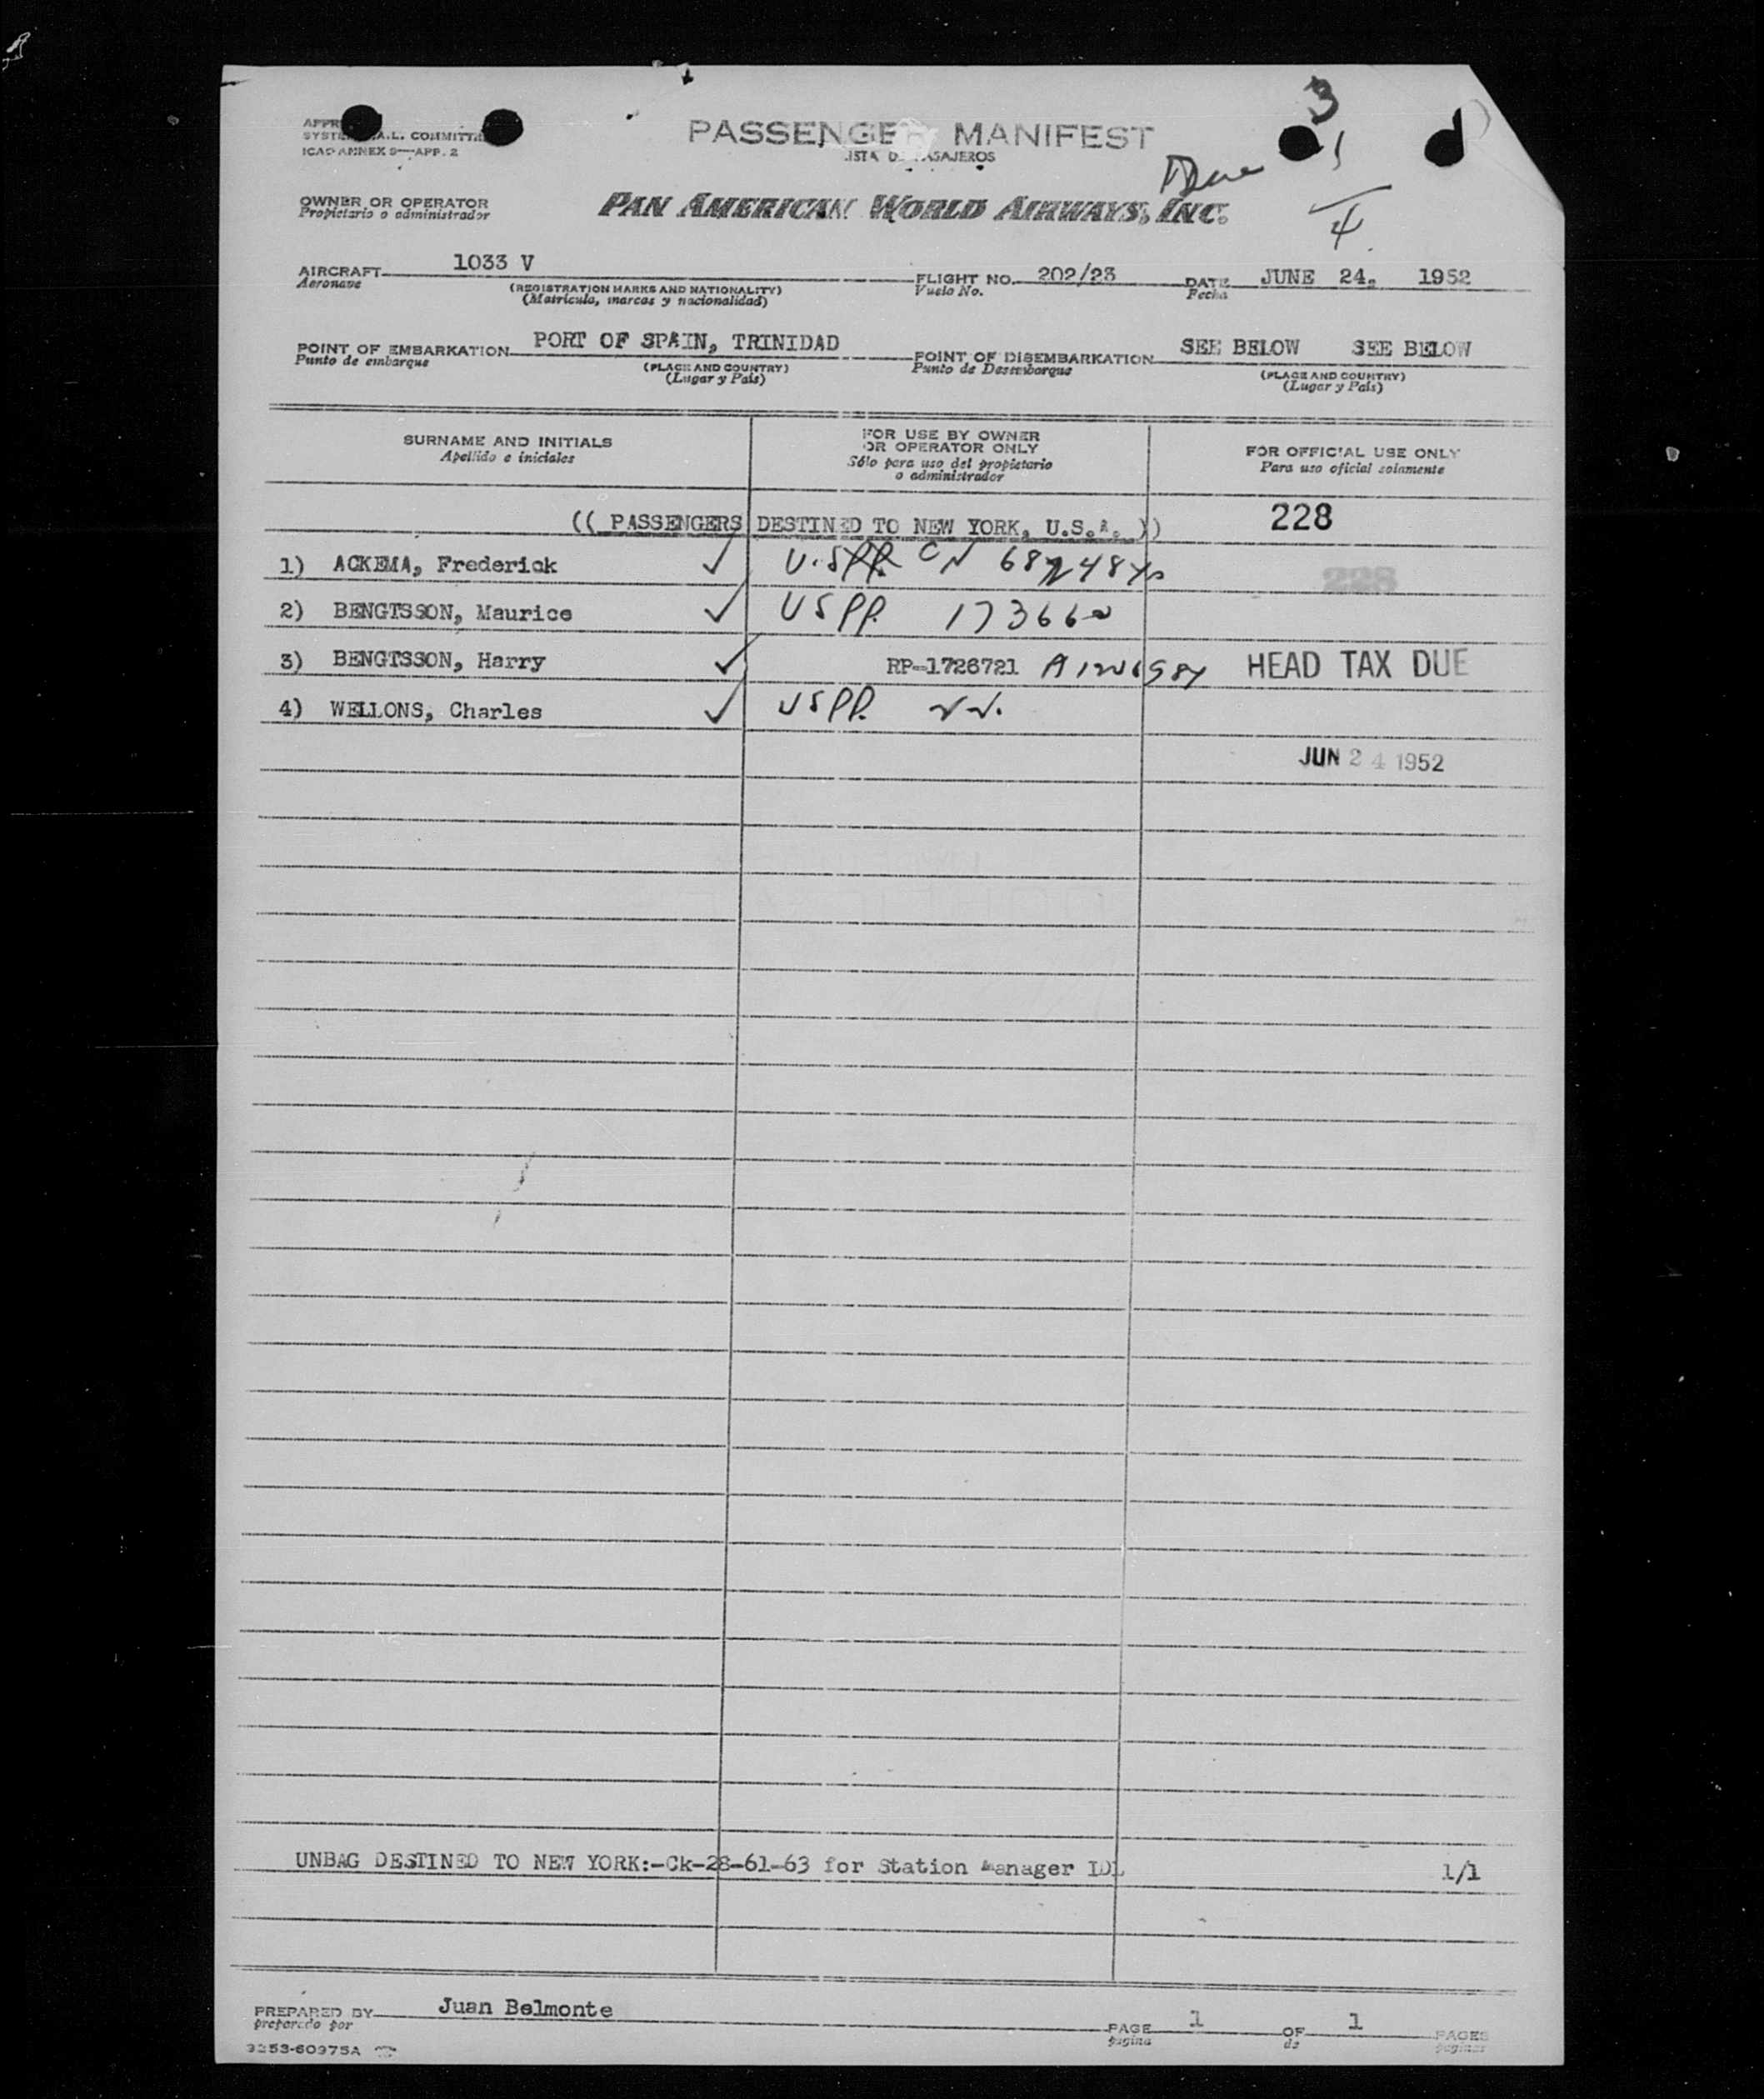 3
PASSENGER MANIFEST
SYSTE A.L. COMMITT
ICAO ANNEX 9—APP. 2
LISTA DE PASAJEROS
1
OWNER OR OPERATOR
Propietario o administrador
PAN AMERICAN WORLD AIRWAYS, INC.
4
AIRCRAFT 1033 V FLIGHT NO. 202/23 DATE JUNE 24, 1952
Aeronave (REGISTRATION MARKS AND NATIONALITY) Vuelo No. Fecha
(Matrícula, marcas y nacionalidad)
POINT OF EMBARKATION PORT OF SPAIN, TRINIDAD POINT OF DISEMBARKATION SEE BELOW SEE BELOW
Punto de embarque (PLACE AND COUNTRY) Punto de Desembarque (PLACE AND COUNTRY)
(Lugar y País) (Lugar y País)
SURNAME AND INITIALS
Apellido e iniciales
FOR USE BY OWNER
OR OPERATOR ONLY
Sólo para uso del propietario
o administrador
FOR OFFICIAL USE ONLY
Para uso oficial solamente
(( PASSENGERS DESTINED TO NEW YORK, U.S.A. )) 228
1) ACKEMA, Frederick ✓ U.S.PP. 228
2) BENGTSSON, Maurice ✓ USPP. 173660
3) BENGTSSON, Harry ✓ RP-1726721 HEAD TAX DUE
4) WELLONS, Charles ✓ USPP.
JUN 24 1952
UNBAG DESTINED TO NEW YORK:-Ck-28-61-63 for Station Manager IDL 1/1
PREPARED BY Juan Belmonte PAGE 1 OF 1 PAGES
preparado por página de páginas
3253-60975A